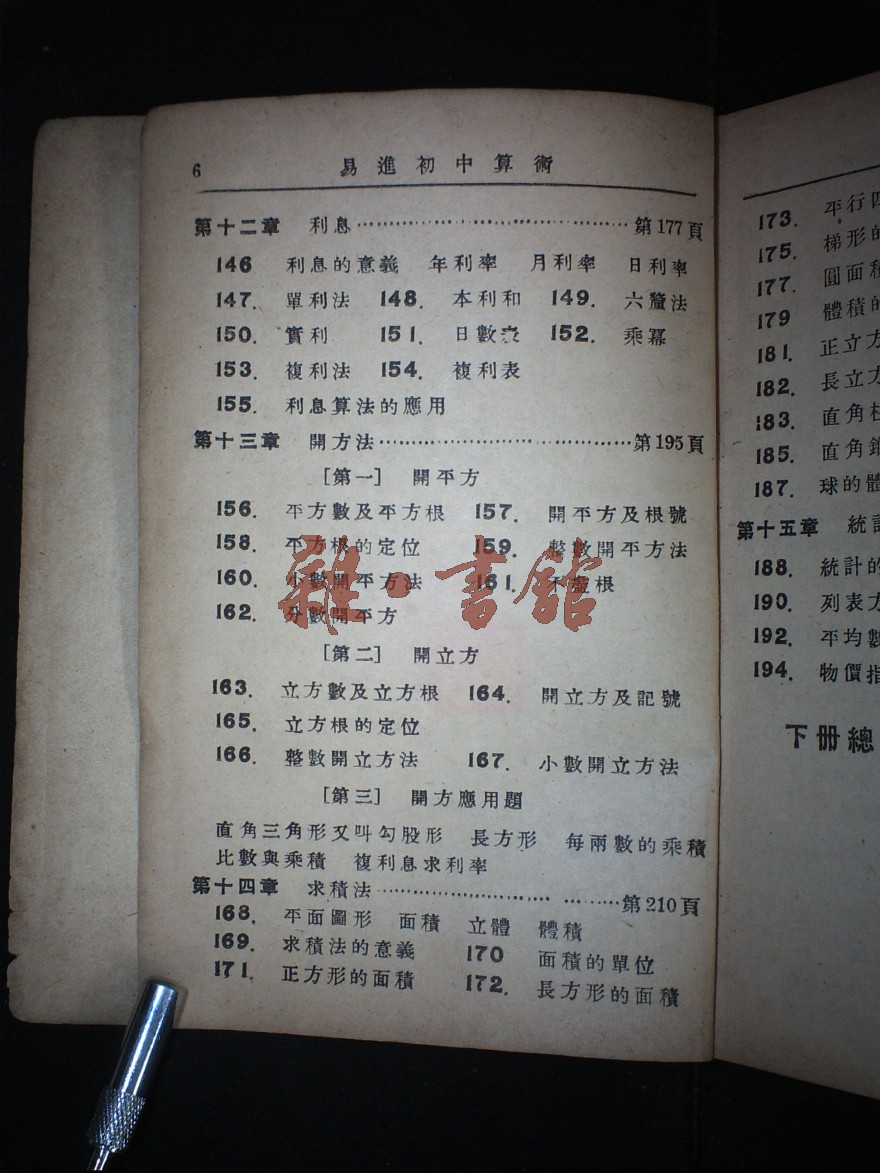 6 易進初中算術
第十二章 利息……………………………第177頁
146 利息的意義 年利率 月利率 日利率
147. 單利法 148. 本利和 149. 六釐法
150. 實利 151. 日數表 152. 乘冪
153. 複利法 154. 複利表
155. 利息算法的應用
第十三章 開方法……………………………第195頁
[第一] 開平方
156. 平方數及平方根 157. 開平方及根號
158. 平方根的定位 159. 整數開平方法
160. 小數開平方法 161. 不盡根
162. 分數開平方
[第二] 開立方
163. 立方數及立方根 164. 開立方及記號
165. 立方根的定位
166. 整數開立方法 167. 小數開立方法
[第三] 開方應用題
直角三角形又叫勾股形 長方形 每兩數的乘積
比數與乘積 複利息求利率
第十四章 求積法……………………………第210頁
168. 平面圖形 面積 立體 體積
169. 求積法的意義 170 面積的單位
171. 正方形的面積 172. 長方形的面積
雜·書館
173. 平行四
175. 梯形的
177. 圓面積
179 體積的
181. 正立方
182. 長立方
183. 直角柱
185. 直角錐
187. 球的體
第十五章 統計
188. 統計的
190. 列表方
192. 平均數
194. 物價指
下册總